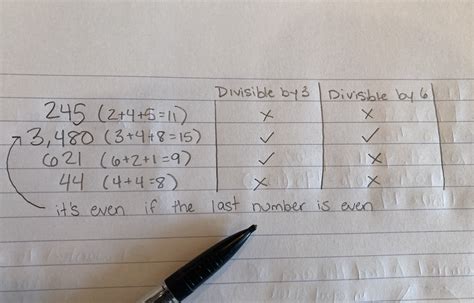 Divisible by 3 Divisible by 6
245 (2+4+5=11) × ×
3,480 (3+4+8=15) ✓ ✓
621 (6+2+1=9) ✓ ×
44 (4+4=8) × ×
it's even if the last number is even